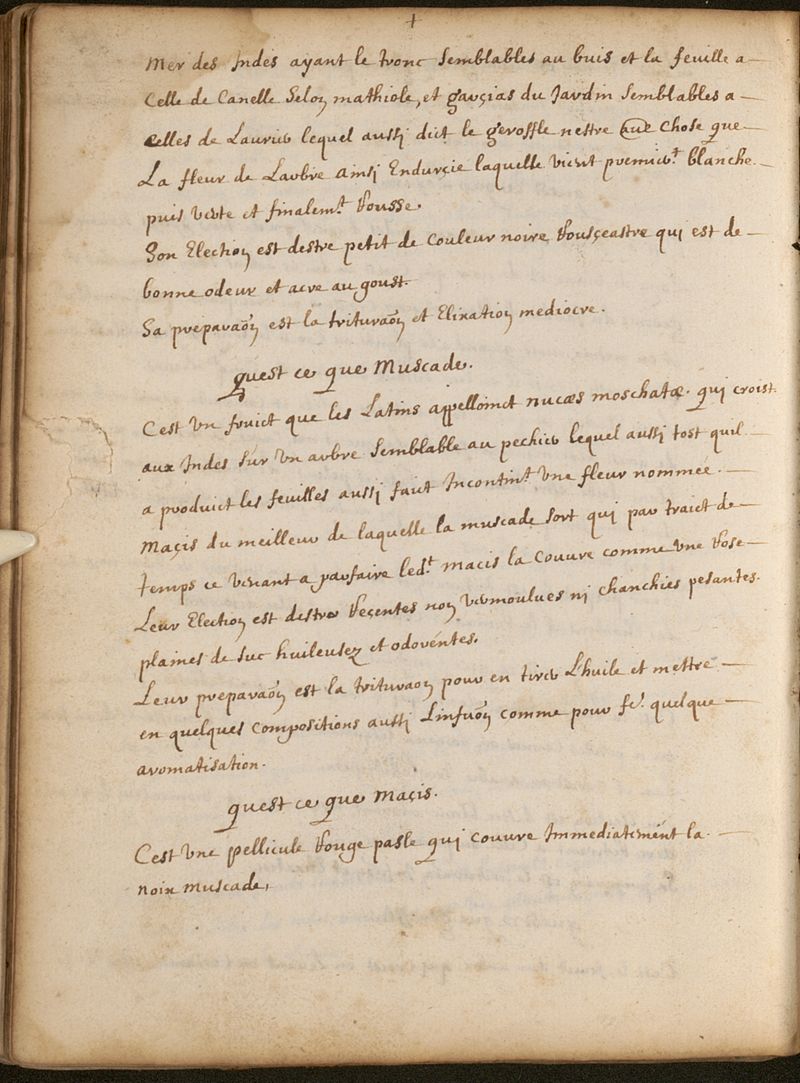 +
Mer des Indes ayant le tronc semblables au buis et la feuille a
Celle de Canelle Selon mathiole, et garçias du Jardin semblables a
celles de Laurier lequel aussi dict le geroffle nestre aue chose que
La fleur de Larbre ainsi Endurçie laquelle vient premier.t blanche
puis verte et finalem.t Rousse.
Son Election est destre petit de couleur noire Rousçeastre qui est de
bonne odeur et acre au goust.
Sa preparaon est la trituraon et Elixation mediocre.
quest ce que Muscade.
Cest Un fruict que les Latins appelloinct nuces moschatæ. qui croist
aux Indes sur Un arbre semblable au pechier lequel aussi tost quil
a produict les feuilles aussi faict Incontin.t Une fleur nommée
Maçis du meilleur de laquelle la muscade sort qui par traict de
temps ce venant a parfaire led.t macis la Couvre comme Une Rose
Leur Election est destres Reçentes non vermoulues ni chanchies pesantes.
plaines de suc huileusez et odorentes.
Leur preparaon est la trituraon pour en tirer L'huile et mettre
en quelques Compositions aussi Linfuon comme pour fe.r quelque
aromatisation.
quest ce que Maçis.
Cest Une pellicule Rouge pasle qui couvre Immediatemént la
noix muscade,